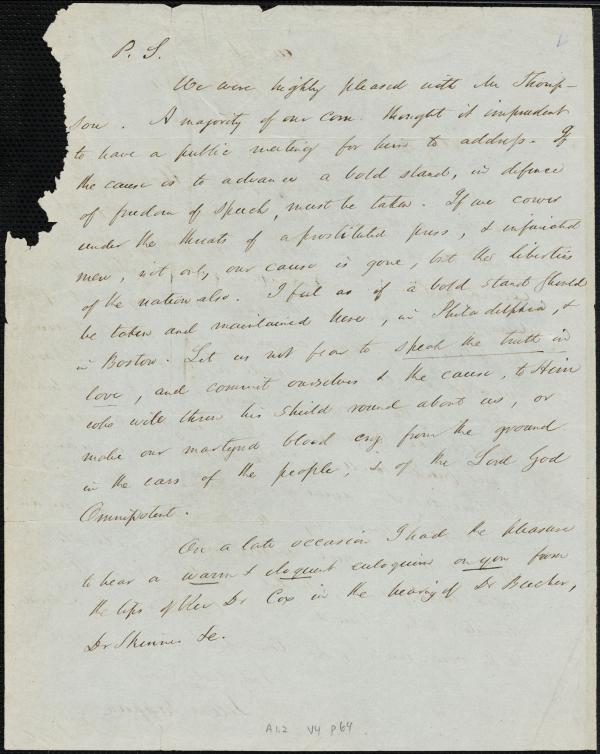 P. S.
We were highly pleased with Mr Thomp-
son. A majority of our com. thought it imprudent
to have a public meeting for him to address. If
the cause is to advance a bold stand, in defence
of freedom of speech, must be taken. If we cower
under the threats of a prostituted press, & infuriated
men, not only our cause is gone, but the liberties
of the nation also. I feel as if a bold stand should
be taken and maintained here, in Philadelphia, &
in Boston. Let us not fear to speak the truth in
love, and commit ourselves & the cause, to Him
who will throw his shield round about us, or
make our martyred blood cry from the ground
in the ears of the people, & of the Lord God
Omnipotent.
On a late occasion I had the pleasure
to hear a warm & eloquent eulogium on you from
the lips of Rev Dr Cox in the hearing of Dr Beecher,
Dr Skinner &c.
A1.2 V4 p64